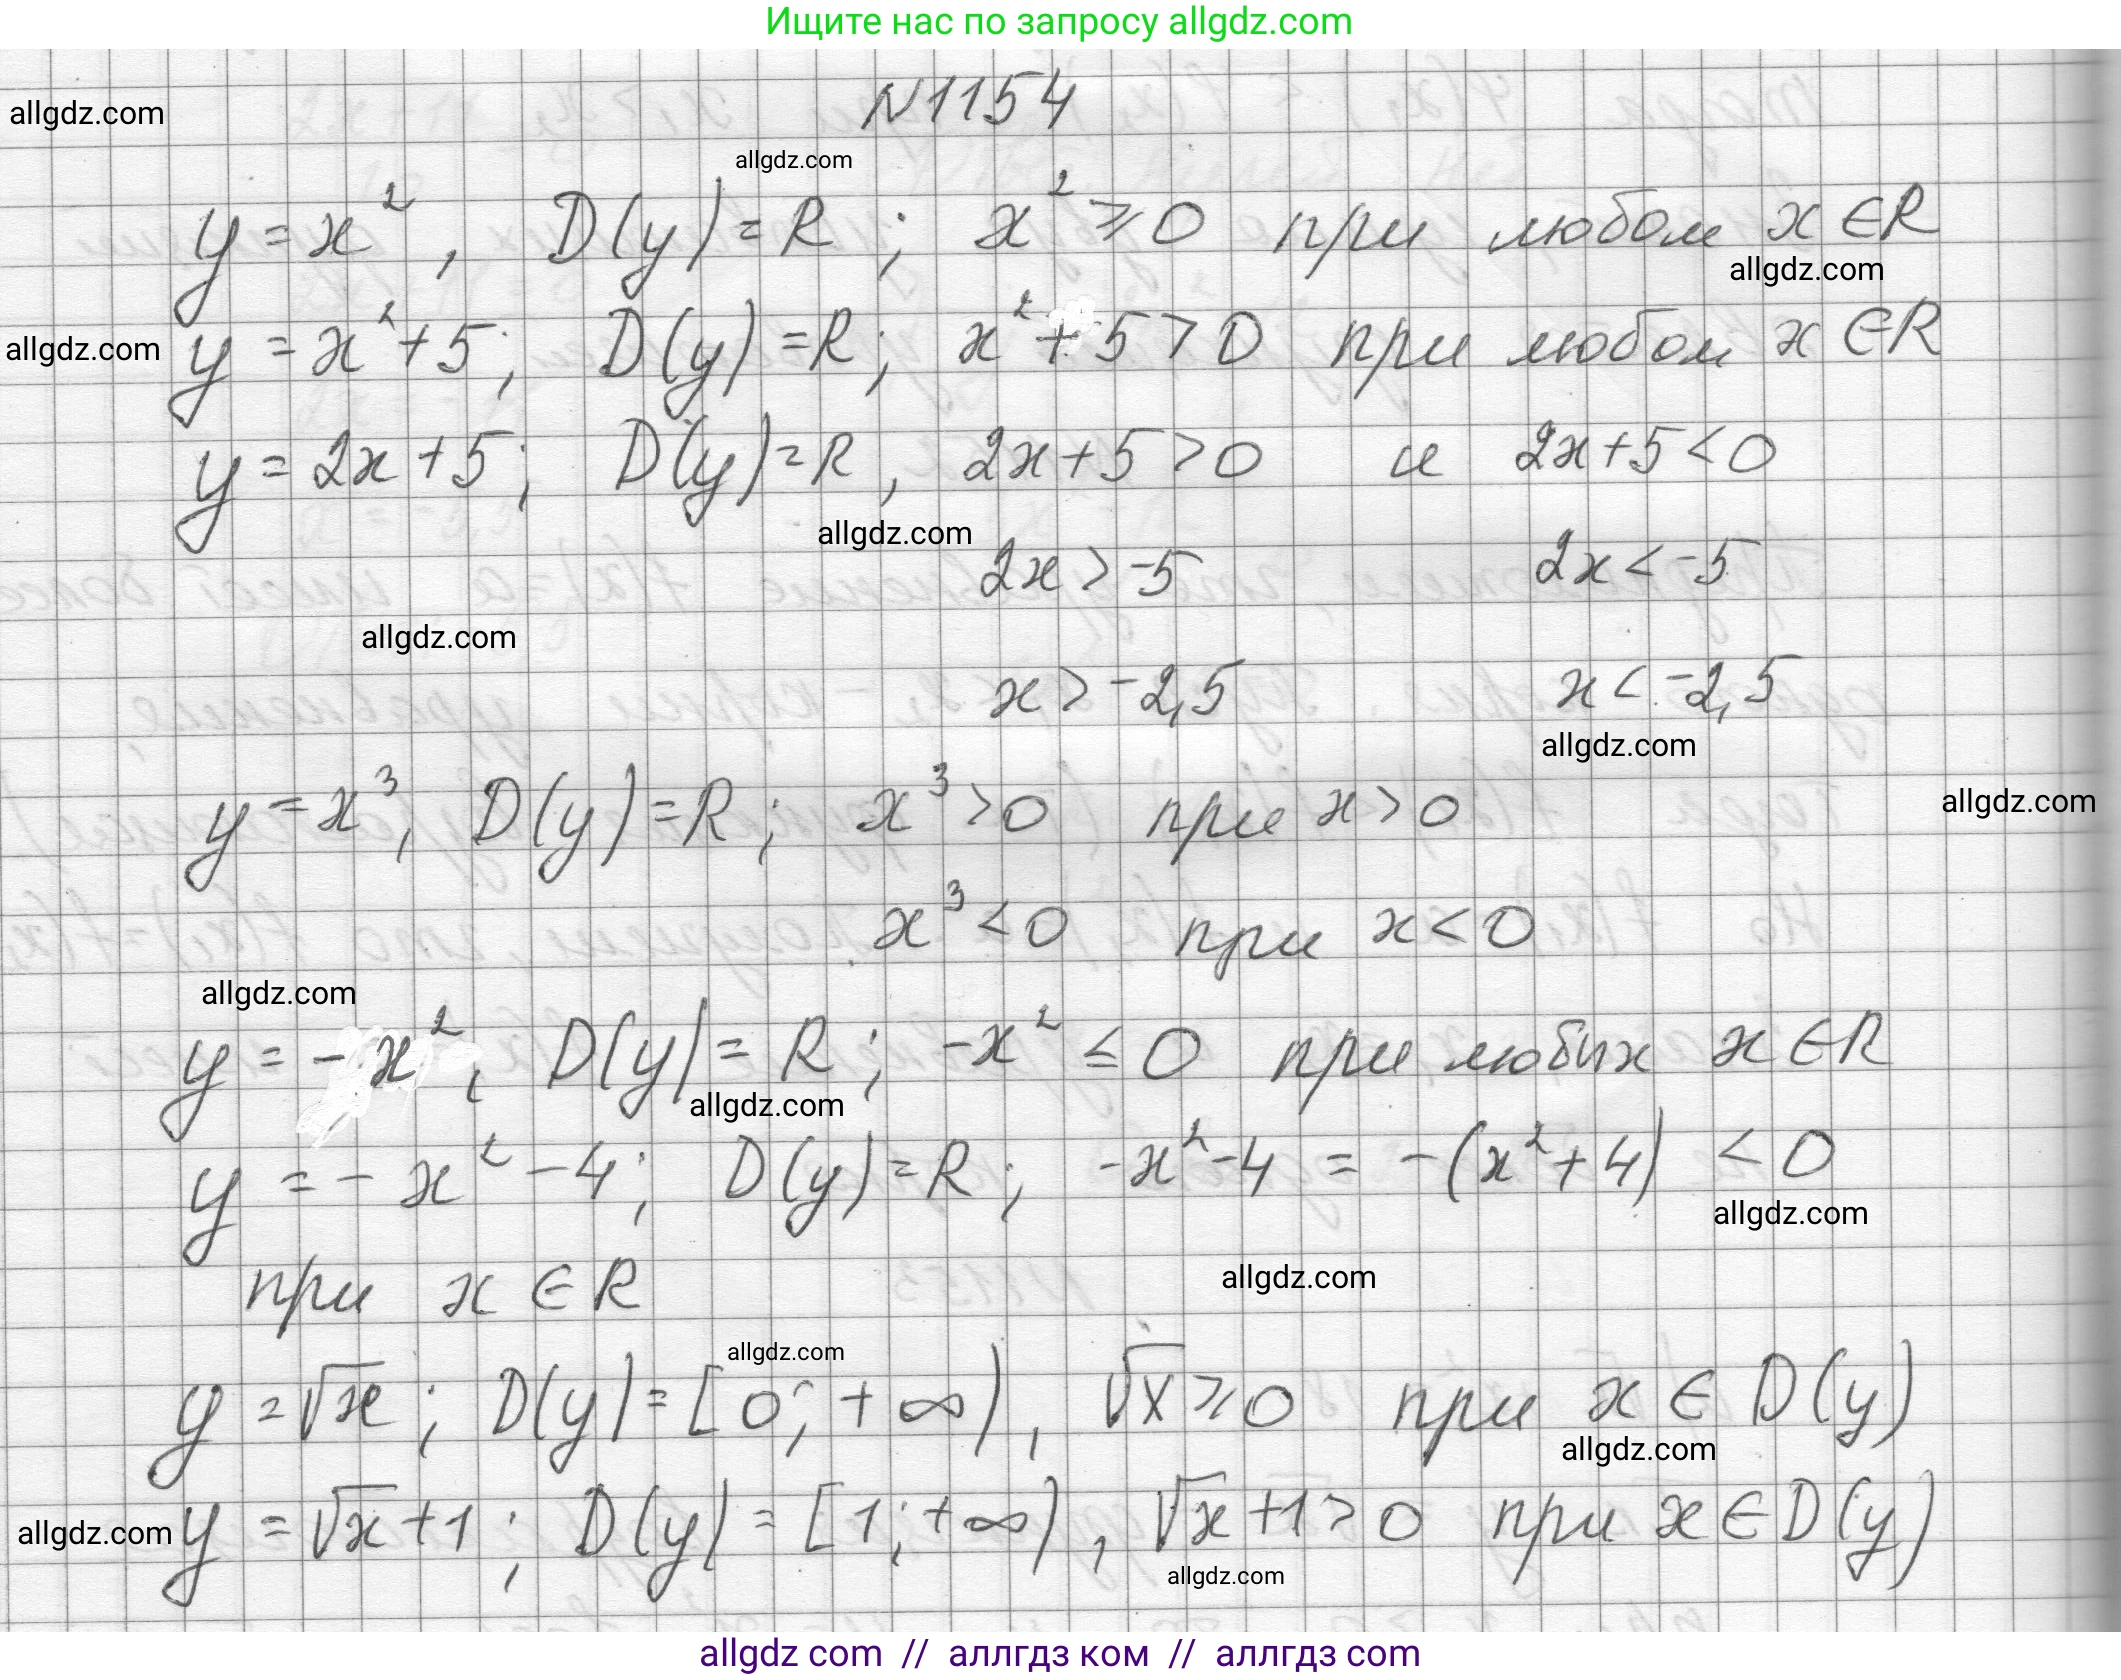 Ищите нас по запросу allgdz.com
N1154
allgdz.com
allgdz.com
y = x², D(y) = R; x² ⩾ 0 при любом x ∈ R
allgdz.com
allgdz.com
y = x² + 5; D(y) = R; x² + 5 > 0 при любом x ∈ R
y = 2x + 5; D(y) = R, 2x + 5 > 0 и 2x + 5 < 0
allgdz.com
2x > -5 2x < -5
allgdz.com
x > -2,5 x < -2,5
allgdz.com
allgdz.com
y = x³, D(y) = R; x³ > 0 при x > 0
x³ < 0 при x < 0
allgdz.com
y = -x², D(y) = R; -x² ≤ 0 при любих x ∈ R
allgdz.com
y = -x² - 4; D(y) = R; -x² - 4 = -(x² + 4) < 0
allgdz.com
при x ∈ R
allgdz.com
allgdz.com
y = √x; D(y) = [0; +∞), √x ⩾ 0 при x ∈ D(y)
allgdz.com
allgdz.com
y = √x + 1; D(y) = [1; +∞), √x + 1 > 0 при x ∈ D(y)
allgdz.com
allgdz com // аллгдз ком // аллгдз com